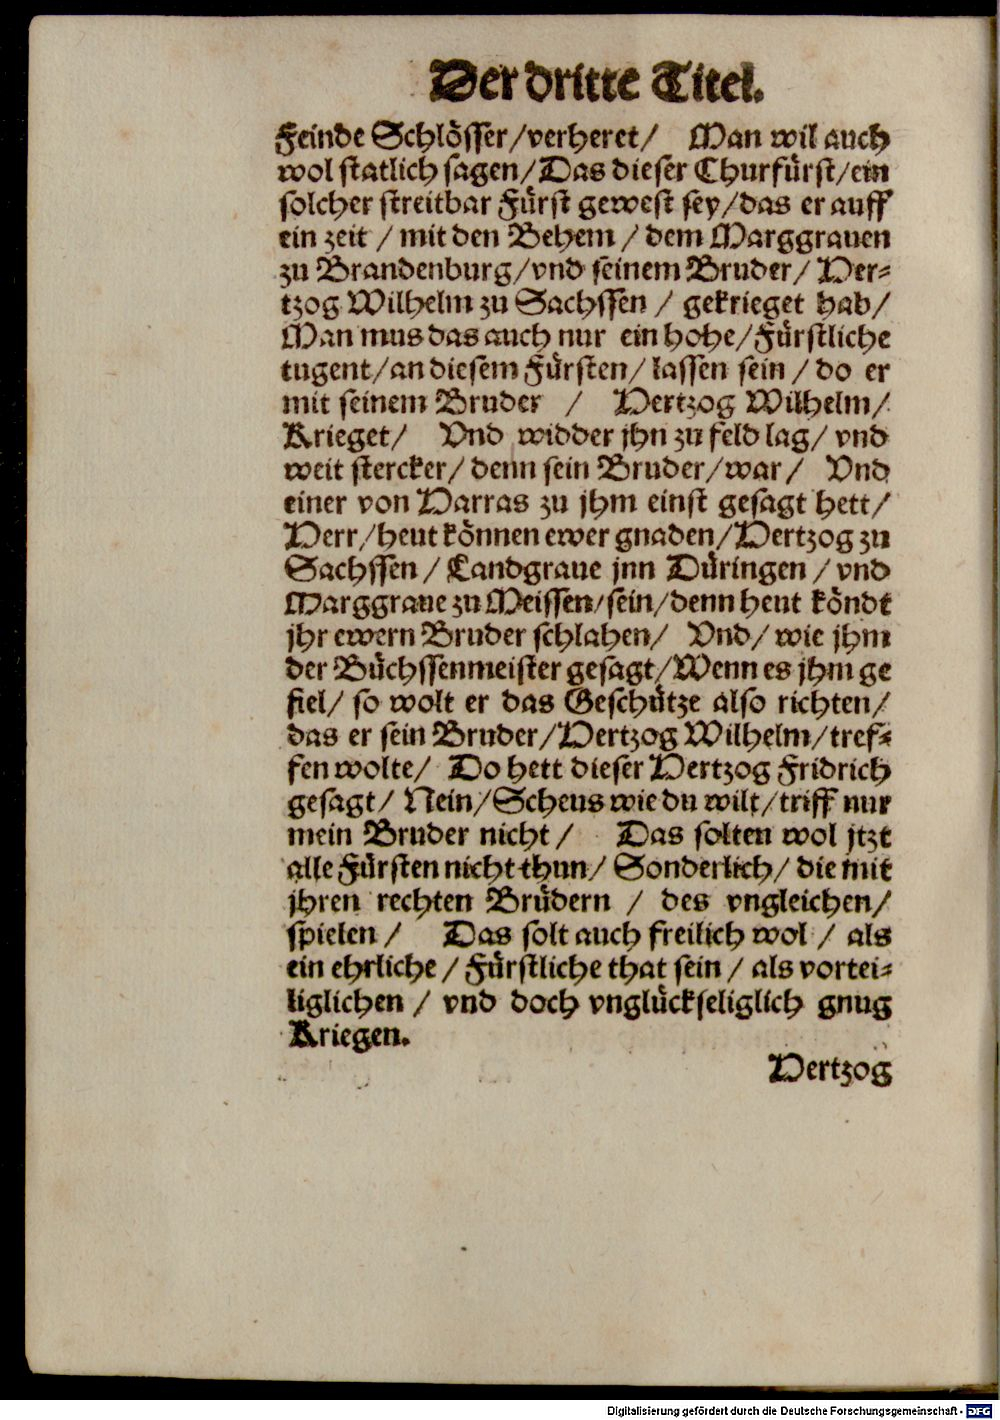 Der dritte Titel.
Feinde Schlösser/verheret/ Man wil auch
wol statlich sagen/Das dieser Churfürst/ein
solcher streitbar Fürst gewest sey/das er auff
ein zeit / mit den Behem / dem Marggrauen
zu Brandenburg/vnd seinem Bruder/ Her⸗
tzog Wilhelm zu Sachssen / gekrieget hab/
Man mus das auch nur ein hohe/Fürstliche
tugent/an diesem Fürsten/ lassen sein / do er
mit seinem Bruder / Hertzog Wilhelm/
Krieget/ Vnd widder jhn zu feld lag/ vnd
weit stercker/ denn sein Bruder/war/ Vnd
einer von Harras zu jhm einst gesagt hett/
Herr/heut können ewer gnaden/Hertzog zu
Sachssen / Landgraue jnn Düringen / vnd
Marggraue zu Meissen/sein/denn heut köndt
jhr ewern Bruder schlahen/ Vnd/ wie jhm
der Büchssenmeister gesagt/Wenn es jhm ge
fiel/ so wolt er das Geschütze also richten/
das er sein Bruder/Hertzog Wilhelm/tref⸗
fen wolte/ Do hett dieser Hertzog Fridrich
gesagt/ Nein/Scheus wie du wilt/triff nur
mein Bruder nicht / Das solten wol jtzt
alle Fürsten nicht thun/ Sonderlich/ die mit
jhren rechten Brüdern / des vngleichen/
spielen / Das solt auch freilich wol / als
ein ehrliche / Fürstliche that sein / als vortei⸗
liglichen / vnd doch vnglückseliglich gnug
Kriegen.
Hertzog
Digitalisierung gefördert durch die Deutsche Forschungsgemeinschaft - DFG